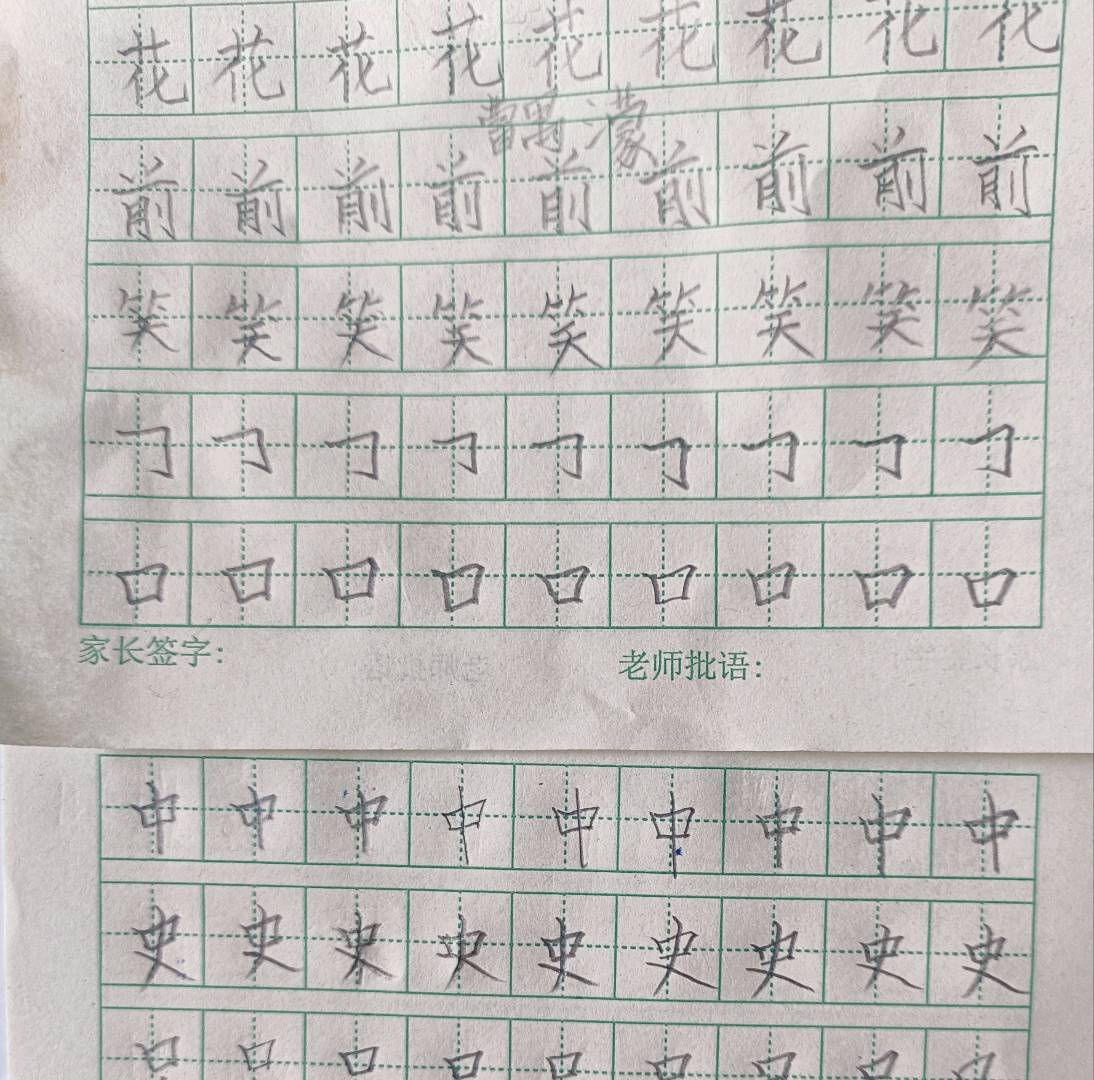 花花花花花花花花花
濛
前前前前前前前前前
笑笑笑笑笑笑笑笑笑
𠃌𠃌𠃌𠃌𠃌𠃌𠃌𠃌𠃌
口口口口口口口口口
家长签字:
老师批语:
中中中中中中中中中
史史史史史史史史史
口口口口口口口口口